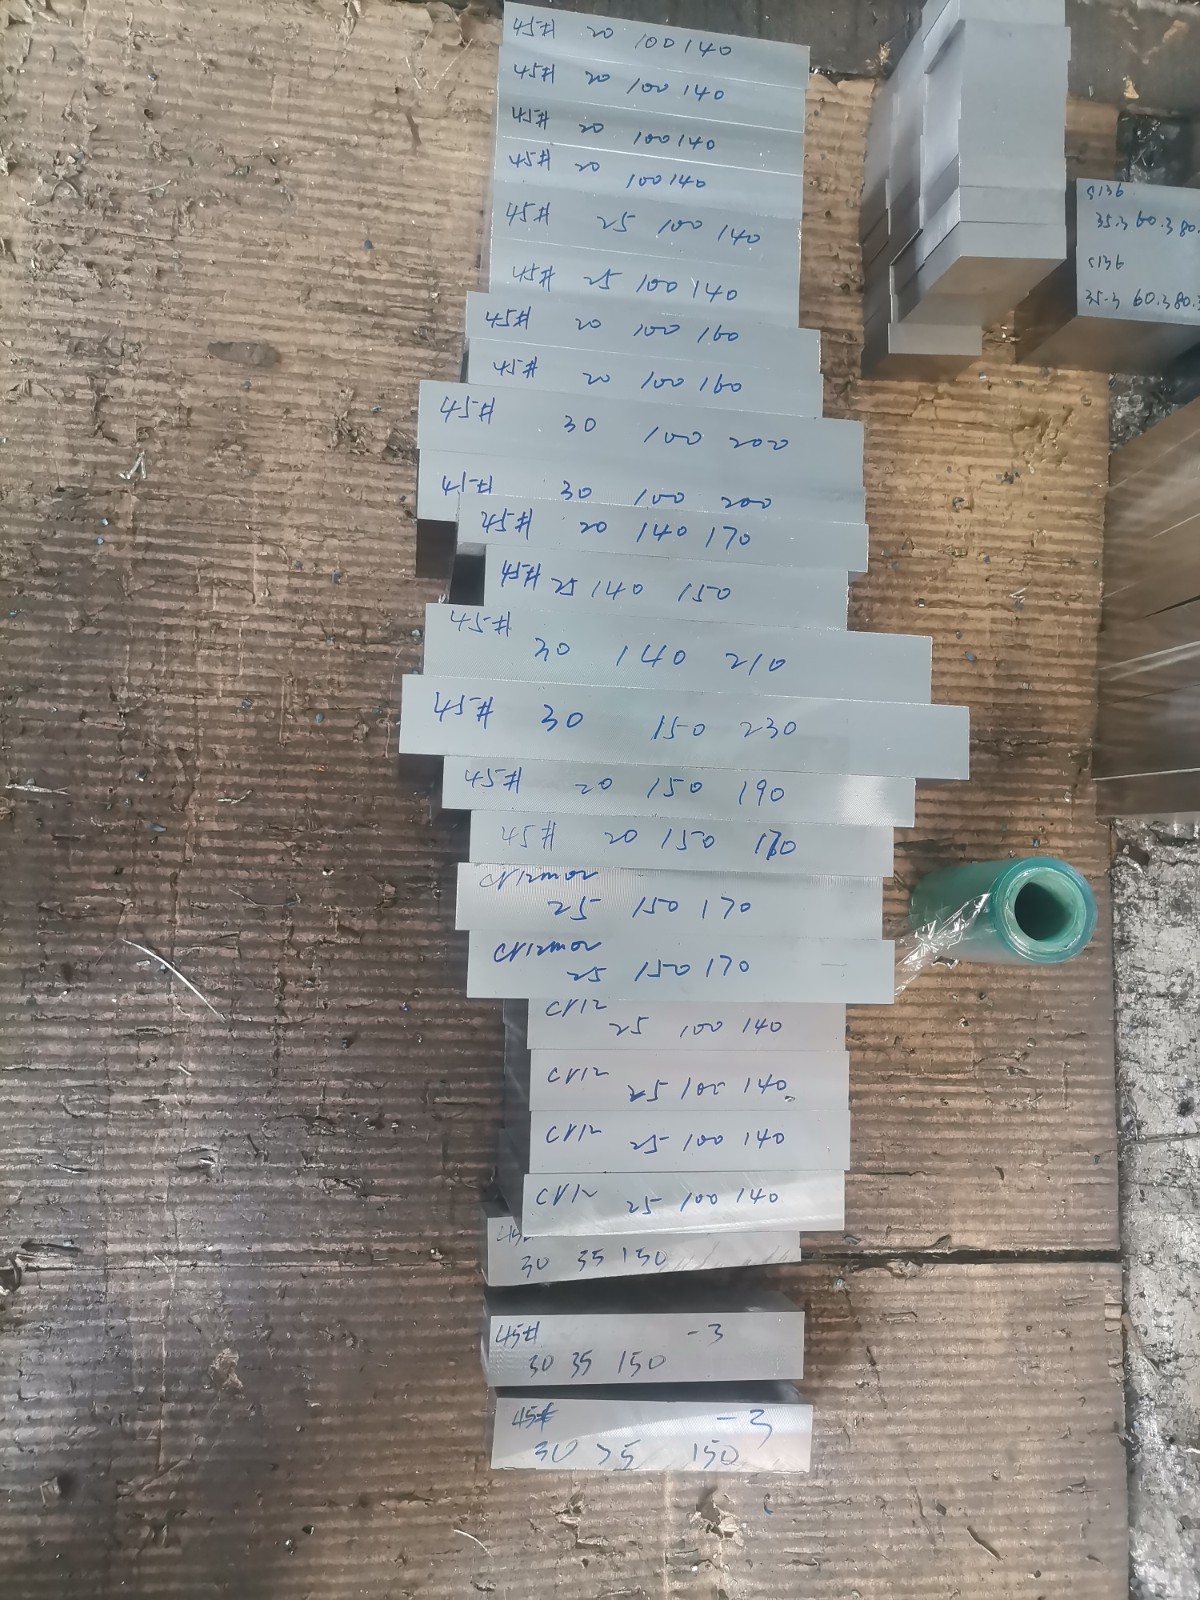 45# 20 100 140
45# 20 100 140
45# 20 100 140
45# 20 100 140
45# 25 100 140
45# 25 100 140
45# 20 100 160
45# 20 100 160
45# 30 100 200
45# 30 100 200
45# 20 140 170
45# 25 140 150
45# 30 140 210
45# 30 150 230
45# 20 150 190
45# 20 150
Cr12mov
25 150 170
Cr12mov
25 150 170
Cr12
25 100 140
Cr12
25 100 140
Cr12
25 100 140
Cr12
25 100 140
30 35 150
45# -3
30 35 150
45# -3
30 35 150
S136
35.3 60.3 80.
S136
35.3 60.3 80.3